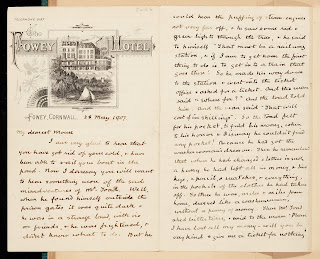 The
FOWEY
HOTEL
FOWEY, CORNWALL.
My dearest Mouse
I am very glad to hear that
you have got rid of your cold, & have
been able to sail your boat in the
pond. Now I daresay you will want
to hear something more of the sad
misadventures of Mr. Toad. Well,
when he found himself outside the
prison gates it was quite dark &
he was in a strange land, with no
friends, & he was frightened, &
didn't know what to do. But he
could hear the puffing of steam engines
not very far off, & he saw some red &
green lights through the trees, & he said
to himself "That must be a railway
station, & if I am to get home the first
thing to do is to get into a train that
goes there". So he made his way down
to the station & went into the ticket
office & asked for a ticket. And the man
said "Where for?" And the Toad told
him. And the man said "That will
cost five shillings". So the Toad felt
for his pocket, to get his money, when
of his horror & dismay he couldn't find
any pocket! Because he had got the
washerwoman's dress on. Then he remembered
that when he had changed clothes in such
a hurry he had left all his money, & his
keys, & pencil, & watch, & everything,
in the pockets of the clothes he had taken
off. So there he was, miles & miles from
home, dressed like a washerwoman,
without a penny of money. Then Mr. Toad
shed bitter tears, & said to the man "Please
I have lost all my money - will you be
very kind & give me a ticket for nothing